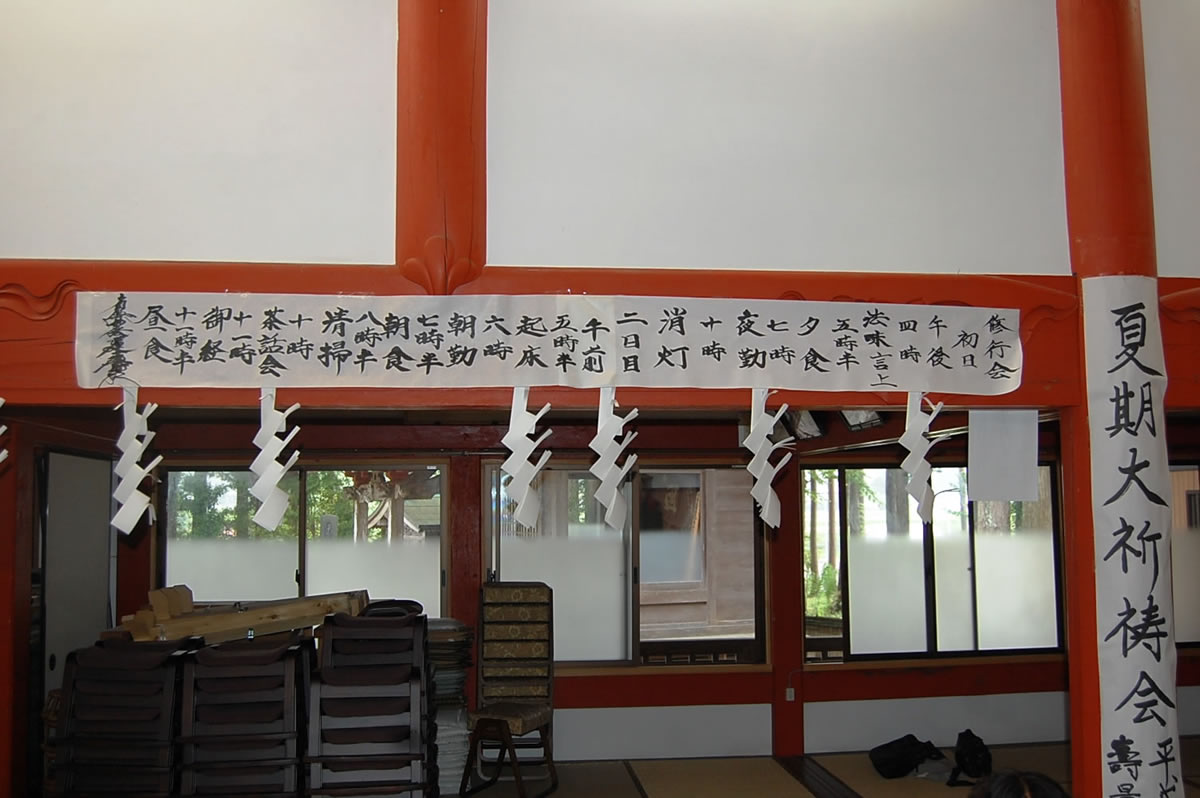 夏期大祈祷会
修行会
初日
午後
四時
法味言上
五時半
夕食
七時
夜勤
十時
消灯
二日目
午前
五時半
起床
六時
朝勤
七時半
朝食
八時半
清掃
十時
茶話会
十一時
御経
十一時半
昼食